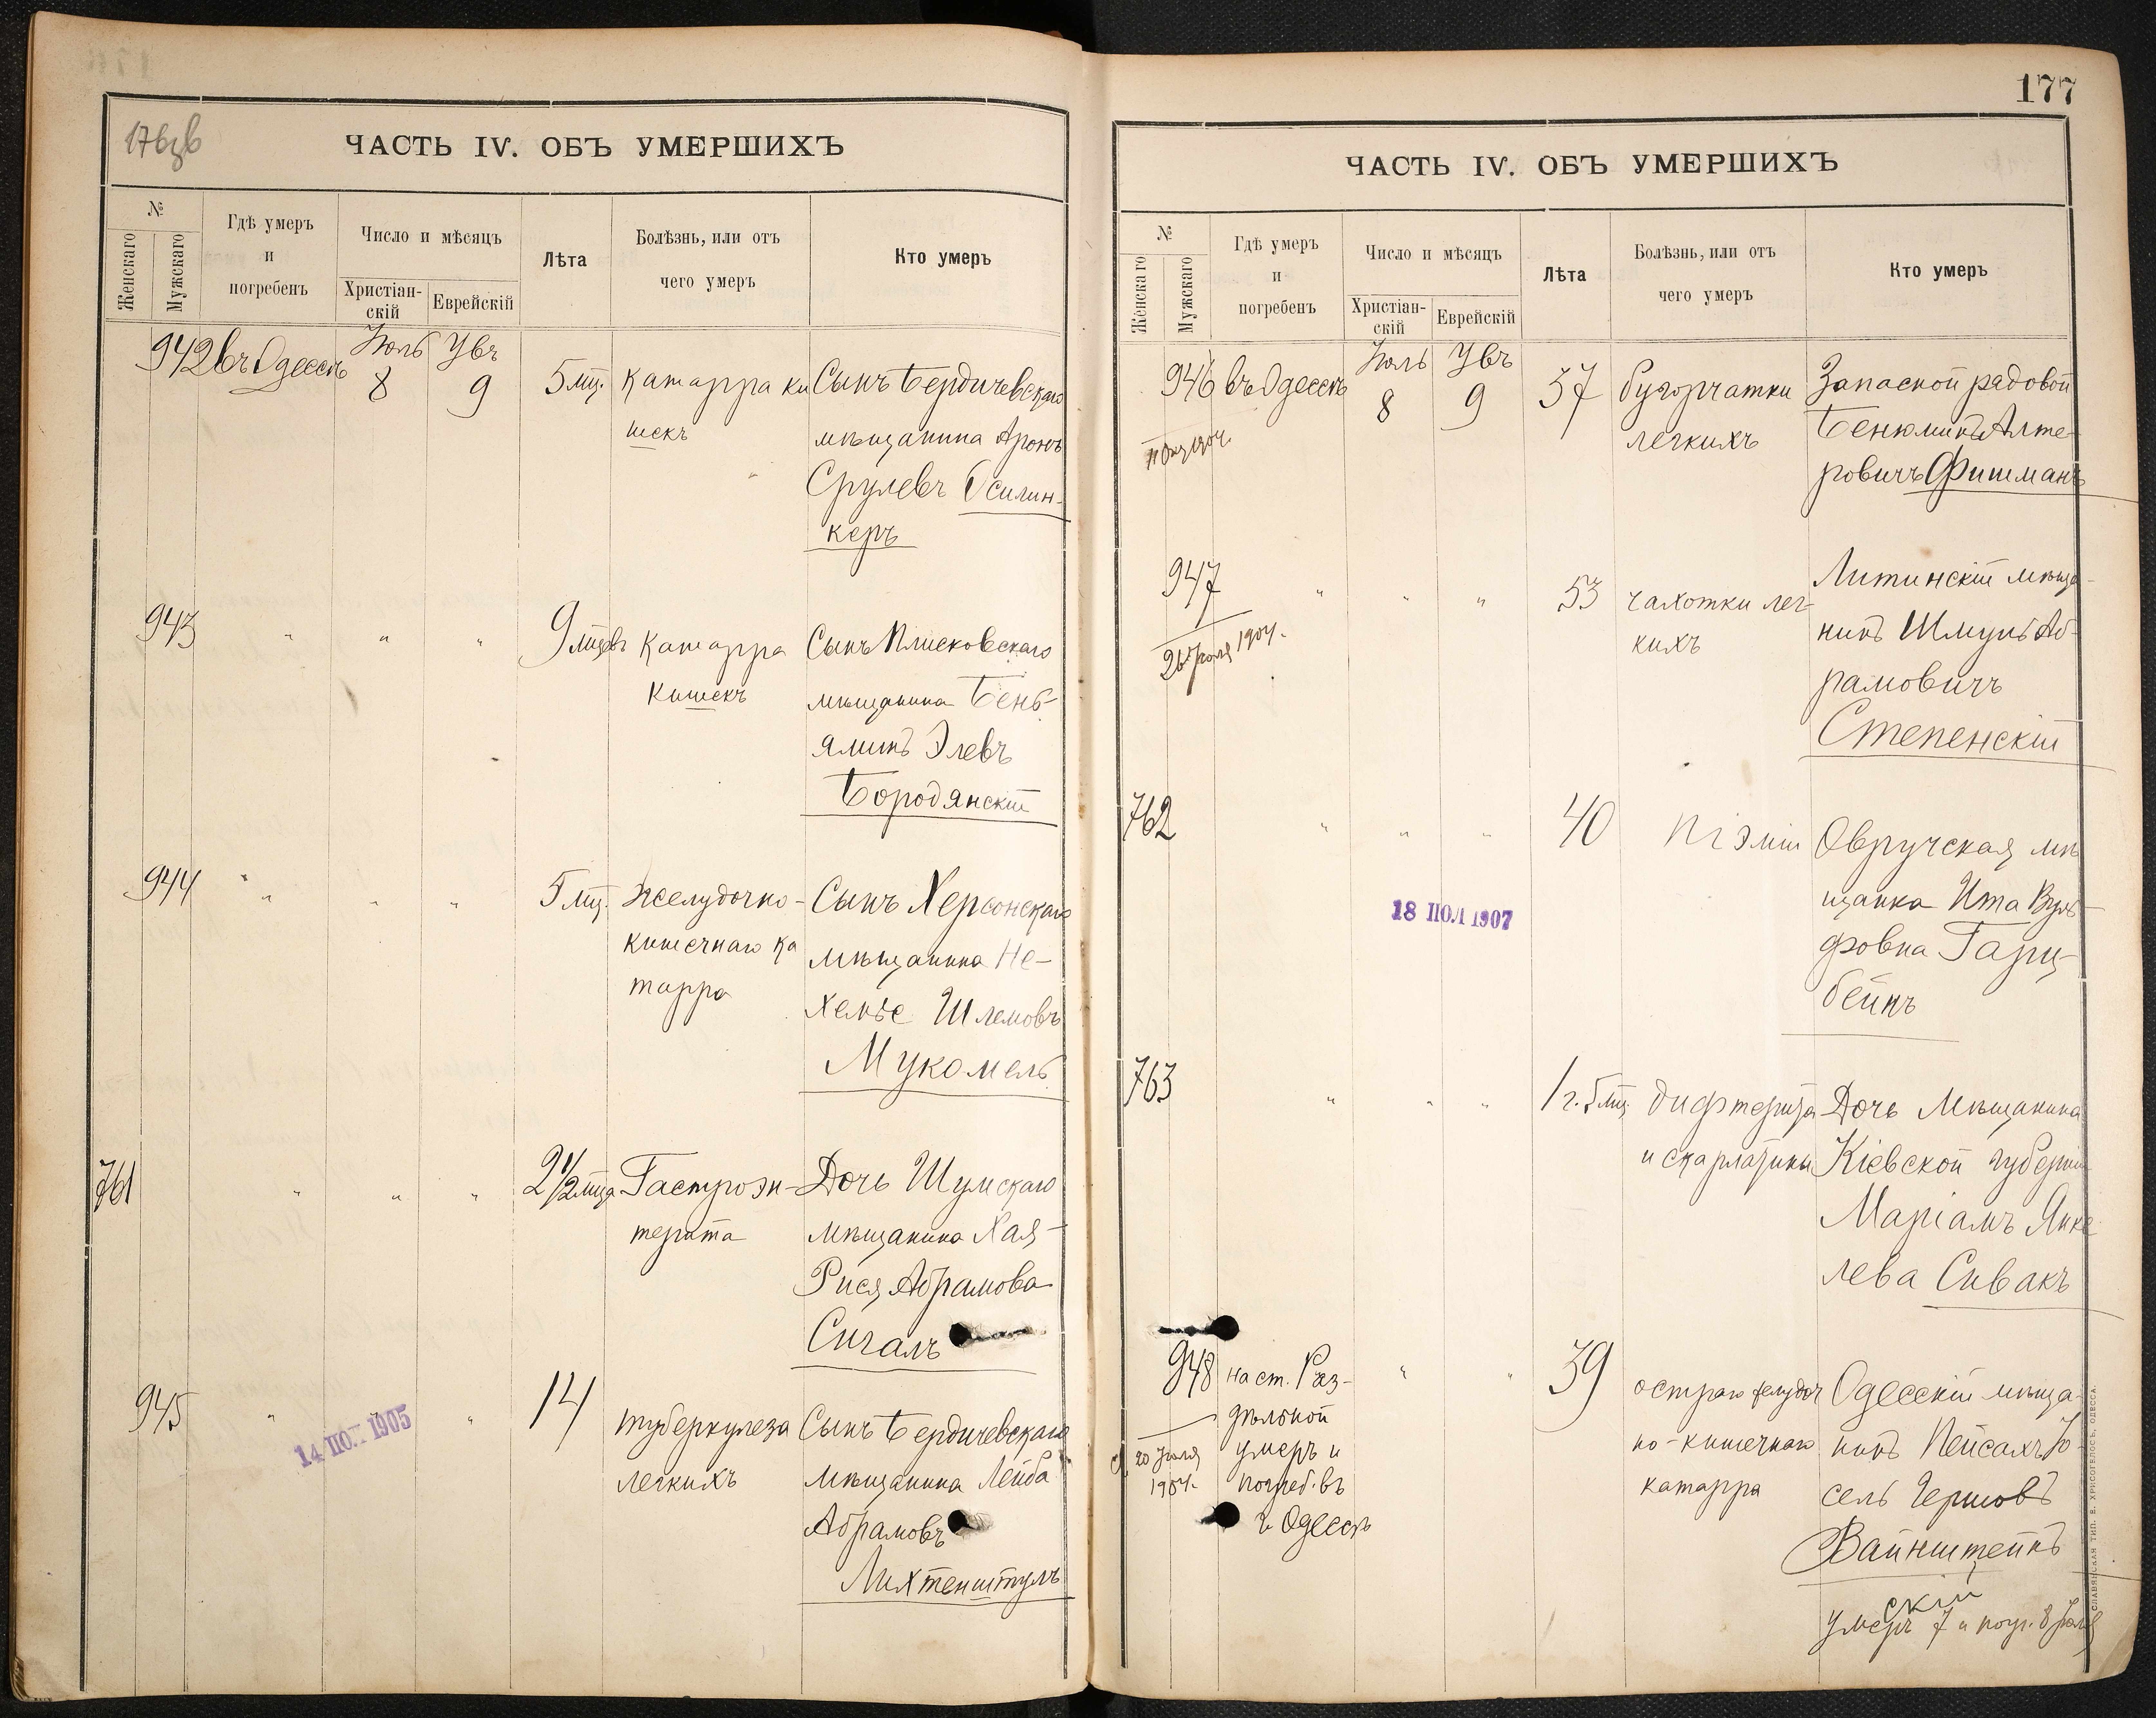 176зв
ЧАСТЬ IV. ОБЪ УМЕРШИХЪ
№
Женскаго
Мужскаго
Гдѣ умеръ
и
погребенъ
Число и мѣсяцъ
Христіан-
скій
Еврейскій
Лѣта
Болѣзнь, или отъ
чего умеръ
Кто умеръ
942 въ Одессѣ Іюль 8 9 5 мц. Катарра ки
шекъ
Сынъ Бердичевскаго
мѣщанина Аронъ
Срулевъ Осилин-
керъ
943 " " " 9 мцевъ Катарра
кишекъ
Сынъ Плисковскаго
мѣщанина Бень-
яминъ Элевъ
Бородянскій
944 " " " 5 мц. Желудочно-
кишечнаго ка
тарра
Сынъ Херсонскаго
мѣщанина Не-
хемье Шлемовъ
Мукомель
761 " " " 2 1/2 мца Гастроэн-
терита
Дочь Шумскаго
мѣщанина Хая-
Рися Абрамова
Сигалъ
945 " " " 14 туберкулеза
легкихъ
Сынъ Бердичевскаго
мѣщанина Лейба
Абрамовъ
Лихтенштулъ
14 ІЮЛ 1905
177
ЧАСТЬ IV. ОБЪ УМЕРШИХЪ
№
Женскаго
Мужскаго
Гдѣ умеръ
и
погребенъ
Число и мѣсяцъ
Христіан-
скій
Еврейскій
Лѣта
Болѣзнь, или отъ
чего умеръ
Кто умеръ
946 въ Одессѣ Іюль 8 9 37 бугорчатки
легкихъ
Запасной рядовой
Бенюминъ Алте-
ровичъ Фишманъ
947 " " " 53 чахотки лег-
кихъ
26 Іюля 1904.
Литинскій мѣща-
нинъ Шмуль Аб-
рамовичъ
Степенскій
762 " " " 40 піэміи
Овручская мѣ
щанка Ита Вуль-
фовна Гарц-
бейнъ
18 ІЮЛ 1907
763 " " " 1 г. 5 мц дифтерита
и скарлатины
Дочь Мѣщанина
Кіевской губерніи
Маріамъ Янке
лева Спвакъ
948 на ст. Раз-
дѣльной
умеръ и
погреб. въ
г. Одессѣ
20 Іюля
1904.
" " 39 остраго желудоч
но-кишечнаго
катарра
Одесскій мѣща-
нинъ Пейсахъ Іо-
сель Гершовъ
Вайнштейнъ
скій
умеръ 7 и погр. 8 Іюля
СЛАВЯНСКАЯ ТИП. Е. ХРИСОГЕЛОСЪ, ОДЕССА.